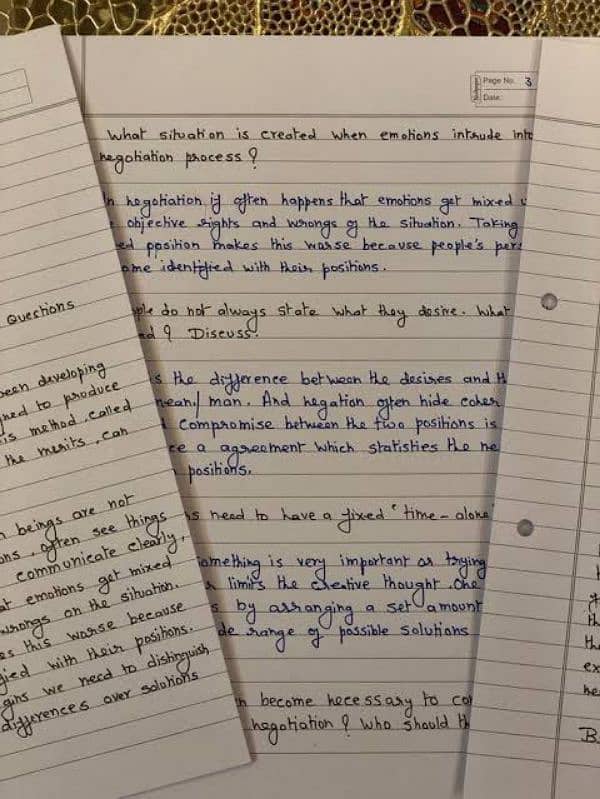 Page No. 3
Date:
What situation is created when emotions intrude
negotiation process ?
negotiation if often happens that emotions get mixed
objective rights and wrongs of the situation. Taking
position makes this worse because people's
identified with their positions.
do not always state what they desire. What
? Discuss.
the difference between the desires and
man. And negation often hide
Compromise between the two positions is
a agreement which statisties the
positions.
need to have a fixed "time - alone
something is very important or trying
limits the creative thought. One
by arranging a set amount
range of possible solutions
become necessary to
negotiation ? Who should
Questions
been developing
to produce
method, called
the merits, can
beings are not
often see things
communicate clearly,
emotions get mixed
wrongs on the situation.
this worse because
with their positions.
we need to distinguish
differences over solutions
B